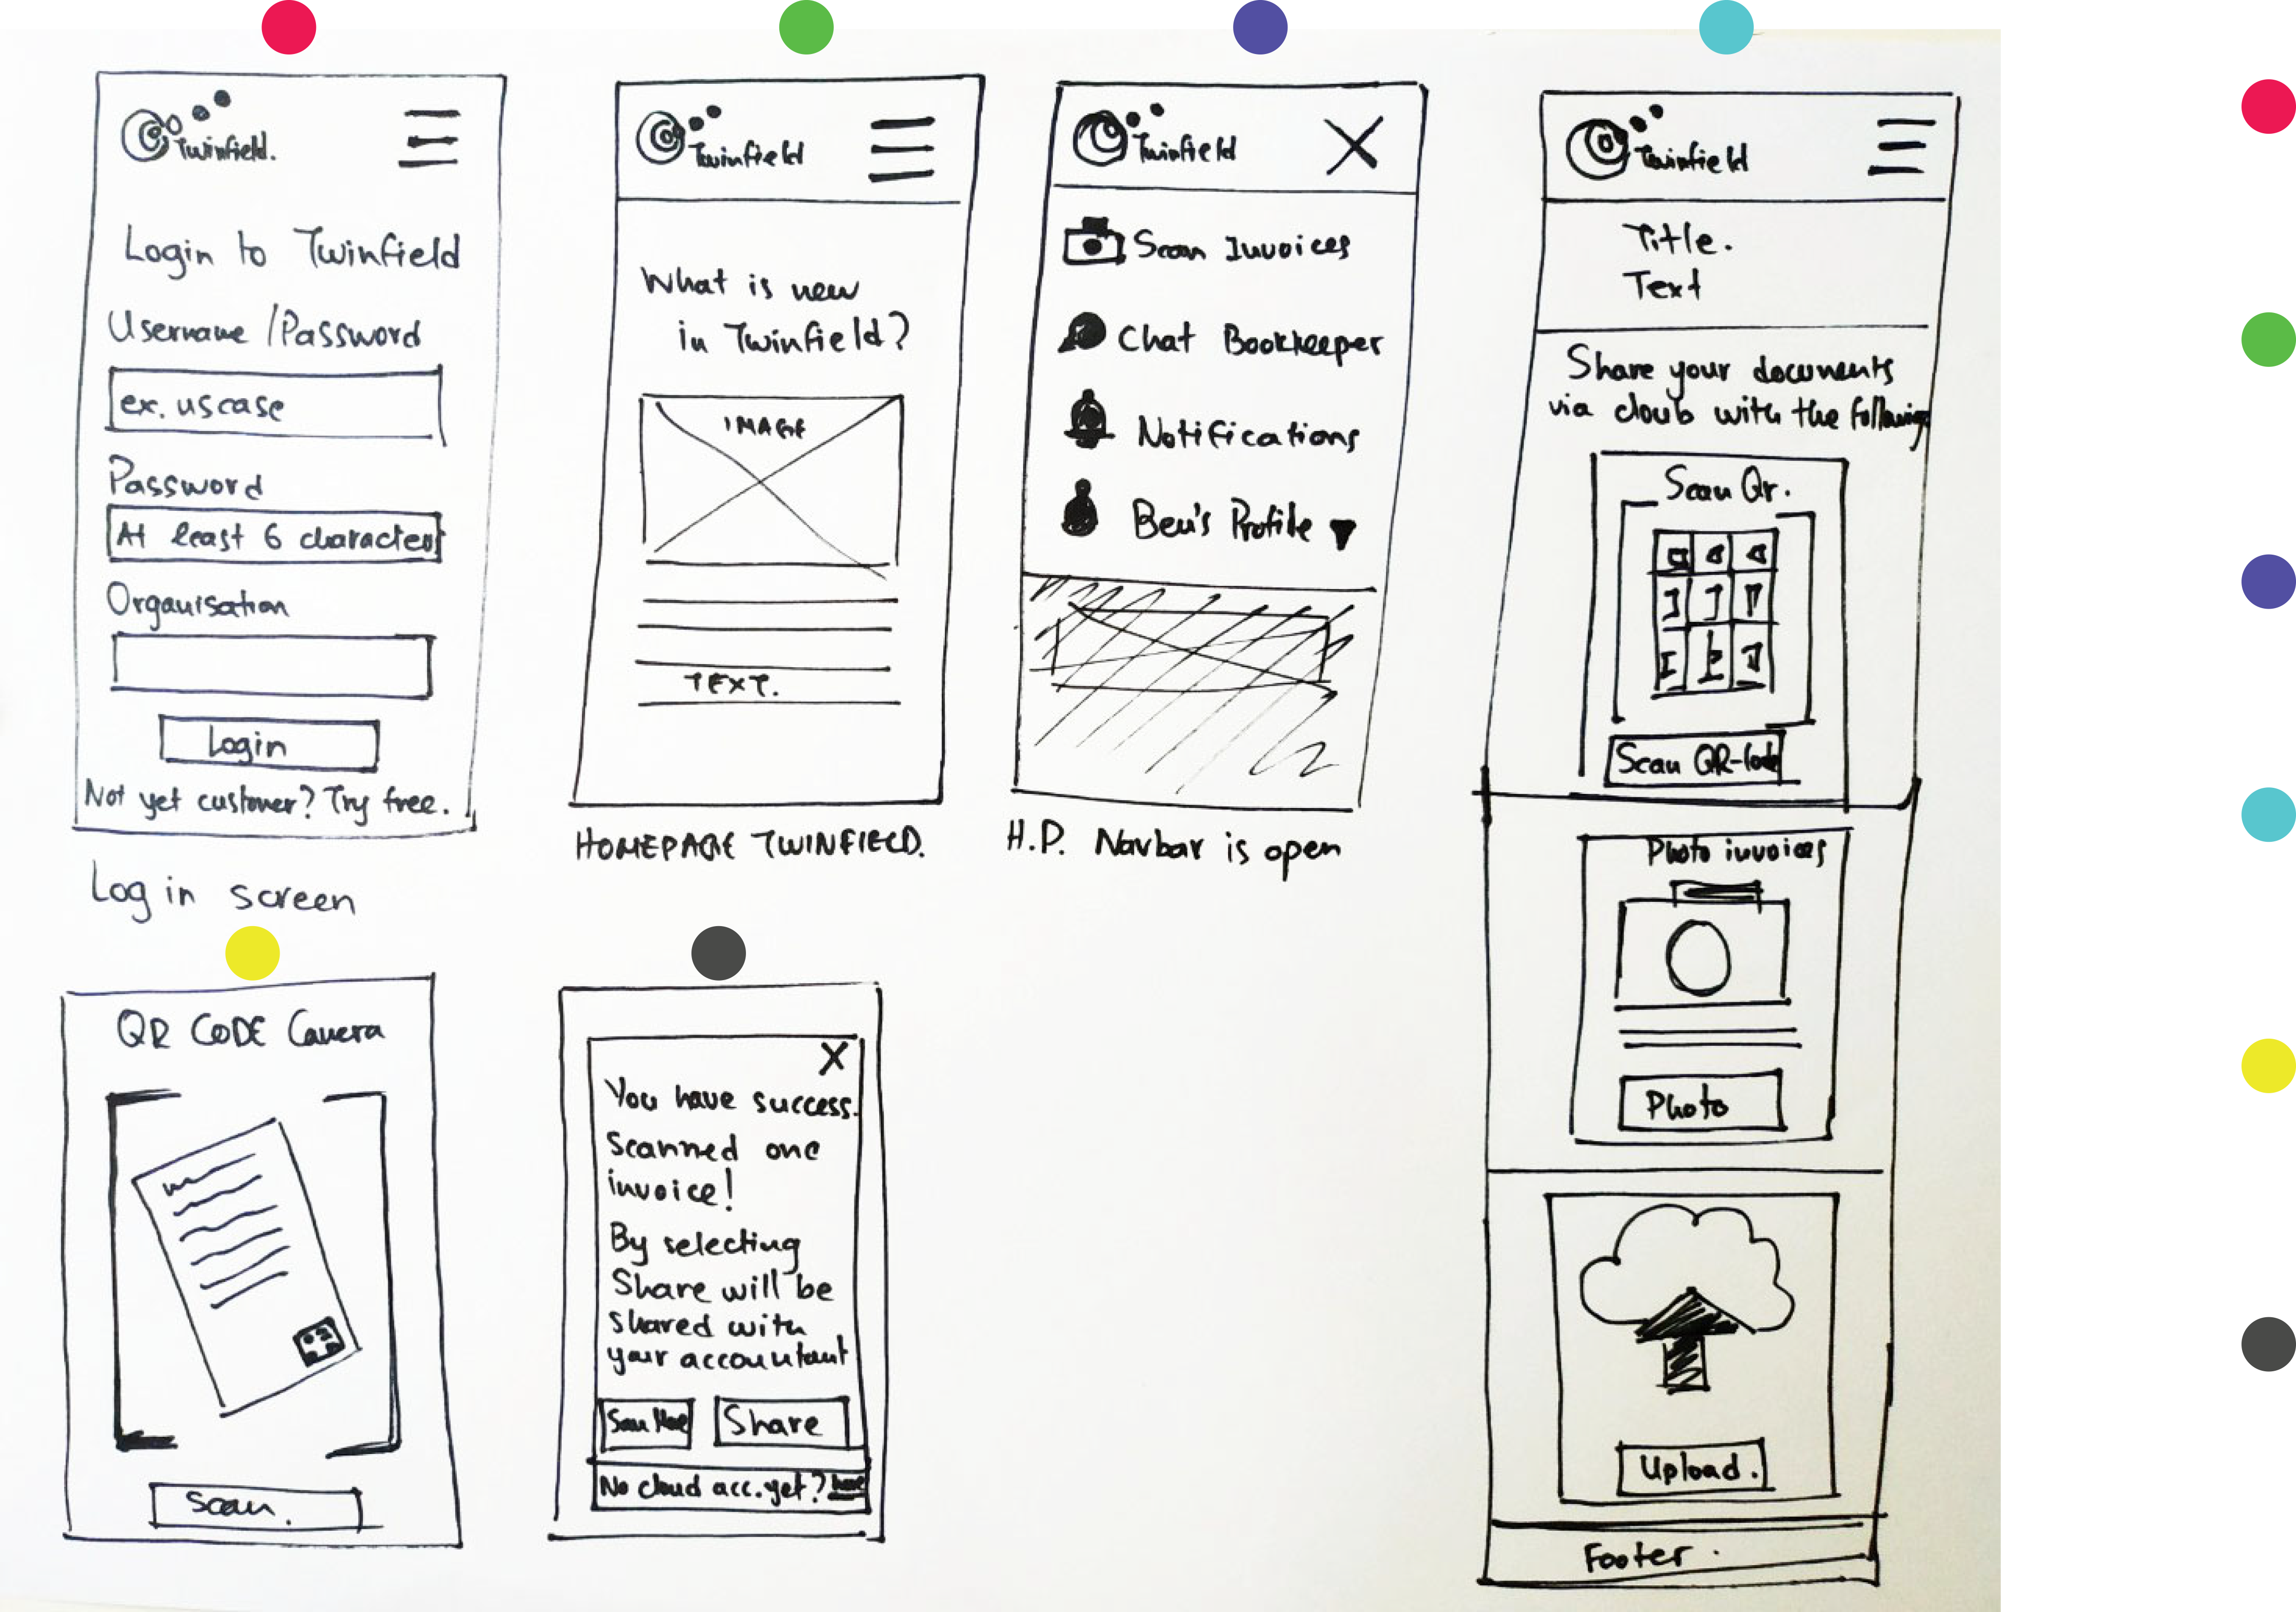 Twinfield.
Login to Twinfield
Username / Password
ex. uscase
Password
At least 6 characters
Organisation
Login
Not yet customer? Try free.
Log in screen
Twinfield
What is new
in Twinfield?
IMAGE
TEXT.
HOMEPAGE TWINFIELD.
Twinfield
Scan Invoices
Chat Bookkeeper
Notifications
Ben's Profile
H.P. Navbar is open
Twinfield
Title.
Text
Share your documents
via cloub with the following
Scan Qr.
Scan QR-Code
Photo invoices
Photo
Upload.
Footer.
QR CODE Camera
Scan.
X
You have success.
scanned one
invoice!
By selecting
Share will be
shared with
your accountant
Scan More
Share
No cloud acc. yet? here